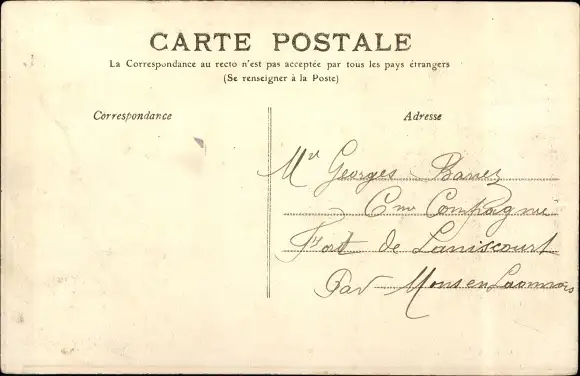 CARTE POSTALE
La Correspondance au recto n'est pas acceptée par tous les pays étrangers
(Se renseigner à la Poste)
Correspondance
Adresse
Mr Georges Barrez
Cme Compagnie
Fort de Laniscourt
Par Mons en Laonnois